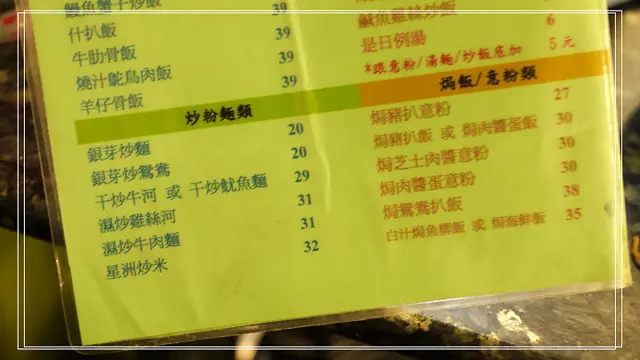 鰻魚蟹子炒飯 39
什扒飯 39
牛肋骨飯 39
燒汁鴕鳥肉飯 39
羊仔骨飯 39
炒粉麵類
銀芽炒麵 20
銀芽炒鴛鴦 20
干炒牛河 或 干炒魷魚麵 29
濕炒雞絲河 31
濕炒牛肉麵 31
星洲炒米 32
鹹魚雞絲炒飯
是日例湯 6
*跟意粉/湯麵/炒飯底加 5 元
焗飯/意粉類
焗豬扒意粉 27
焗豬扒飯 或 焗肉醬蛋飯 30
焗芝士肉醬意粉 30
焗肉醬蛋意粉 30
焗鴛鴦扒飯 38
白汁焗魚柳飯 或 焗海鮮飯 35